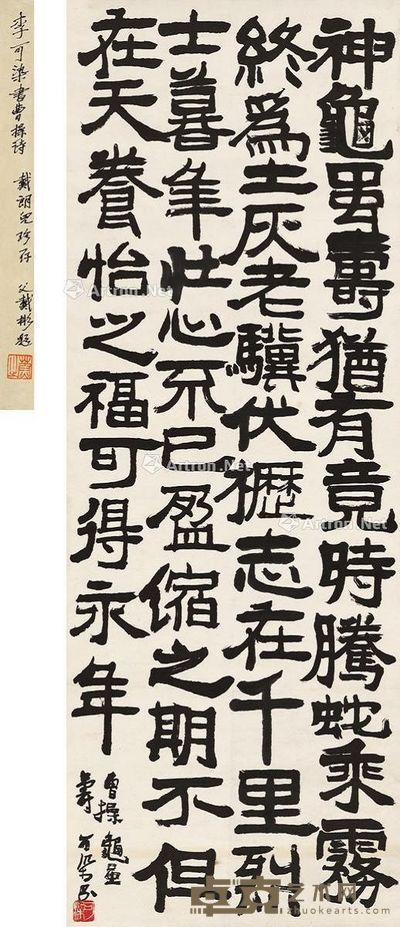 神龜虽壽猶有竟時騰蛇乘霧
終爲土灰老驥伏櫪志在千里列
士暮年壯心不已盈縮之期不但
在天養怡之福可得永年
曹操龜虽
壽 可染書
李可染書曹操詩 戴朗兒珍存 父戴彬題
Artron.Net
Artron.Net
Artron.Net
卓克艺术网
zhuokearts.com